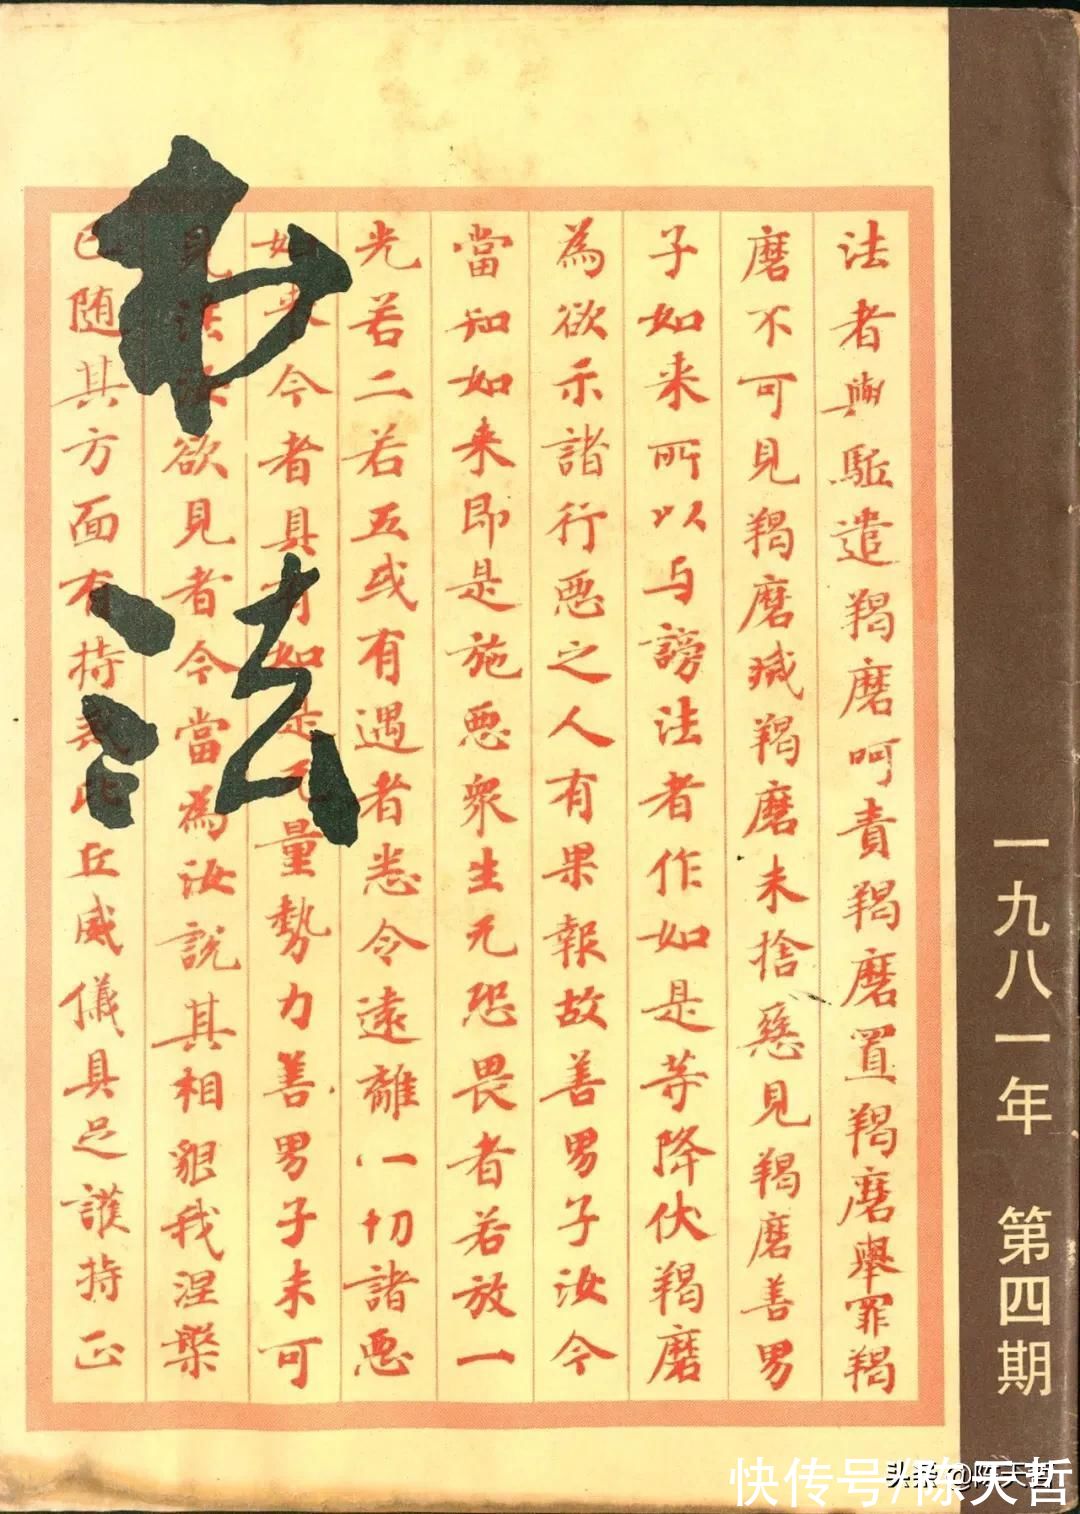 书法
法者與駈遣羯磨呵責羯磨置羯磨舉罪羯
磨不可見羯磨滅羯磨未捨惡見羯磨善男
子如来所以与謗法者作如是等降伏羯磨
為欲示諸行惡之人有果報故善男子汝今
當知如来即是施惡衆生无恐畏者若放一
光若二若五或有遇者悉令遠離一切諸惡
如来今者具有如是无量勢力善男子未可
見法汝欲見者今當為汝説其相貌我涅槃
已随其方面有持戒比丘威儀具足護持正
一九八一年 第四期
头条 @陈天哲
快传号/陈天哲